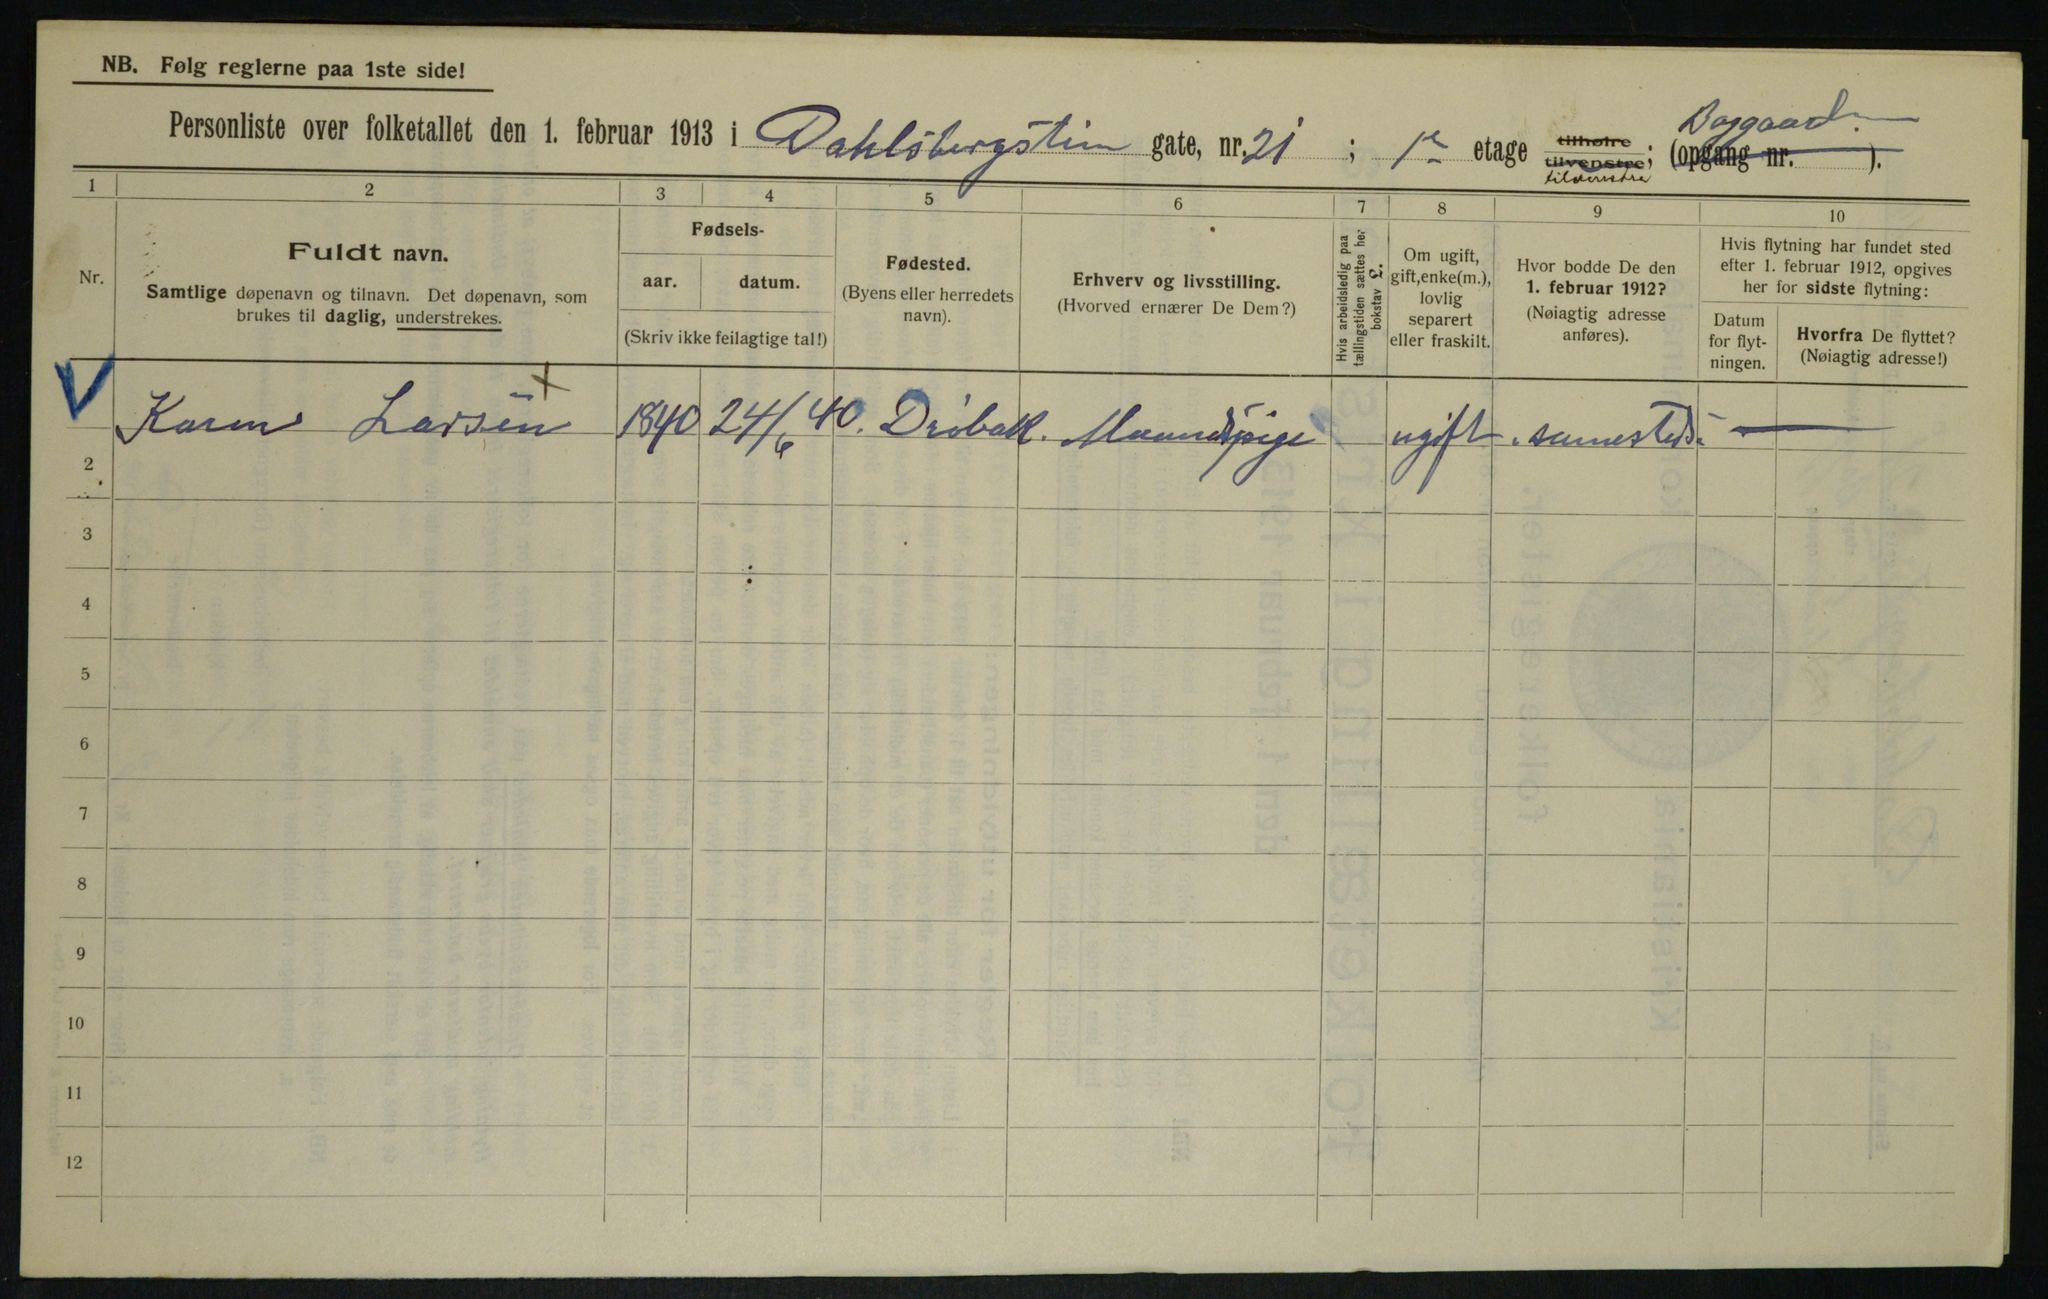 NB. Følg reglerne paa 1ste side!
Personliste over folketallet den 1. februar 1913 i Dahlsbergstien gate, nr. 21 ; 1ste etage tilhøire tilvenstre; tilvenstre (opgang nr. ). Baggaard
1 2 3 4 5 6 7 8 9 10
Nr.
Fuldt navn.
Samtlige døpenavn og tilnavn. Det døpenavn, som
brukes til daglig, understrekes.
Fødsels-
aar. datum.
(Skriv ikke feilagtige tal!)
Fødested.
(Byens eller herredets
navn).
Erhverv og livsstilling.
(Hvorved ernærer De Dem?)
Hvis arbeidsledig paa
tællingstiden sættes her
bokstav L.
Om ugift,
gift, enke(m.),
lovlig
separert
eller fraskilt.
Hvor bodde De den
1. februar 1912?
(Nøiagtig adresse
anføres).
Hvis flytning har fundet sted
efter 1. februar 1912, opgives
her for sidste flytning:
Datum
for flyt-
ningen.
Hvorfra De flyttet?
(Nøiagtig adresse!)
Karen Larsen 1840 24/6 40. Drøbak. ugift. samesteds —
2
3
4
5
6
7
8
9
10
11
12